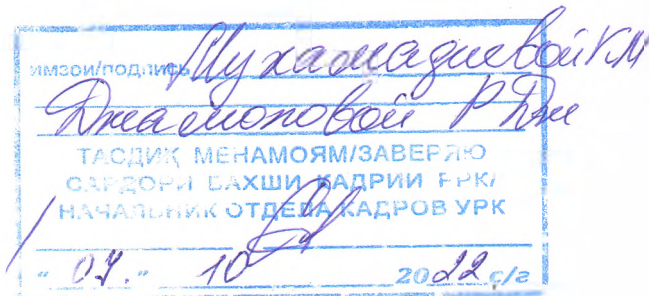 имзои/подпись Мухамадиевой КМ
Джамоновой Р Дж
ТАСДИҚ МЕНАМОЯМ/ЗАВЕРЯЮ
САРДОРИ БАХШИ КАДРИИ РРК/
НАЧАЛЬНИК ОТДЕЛА КАДРОВ УРК
"07." 10 2022 с/г